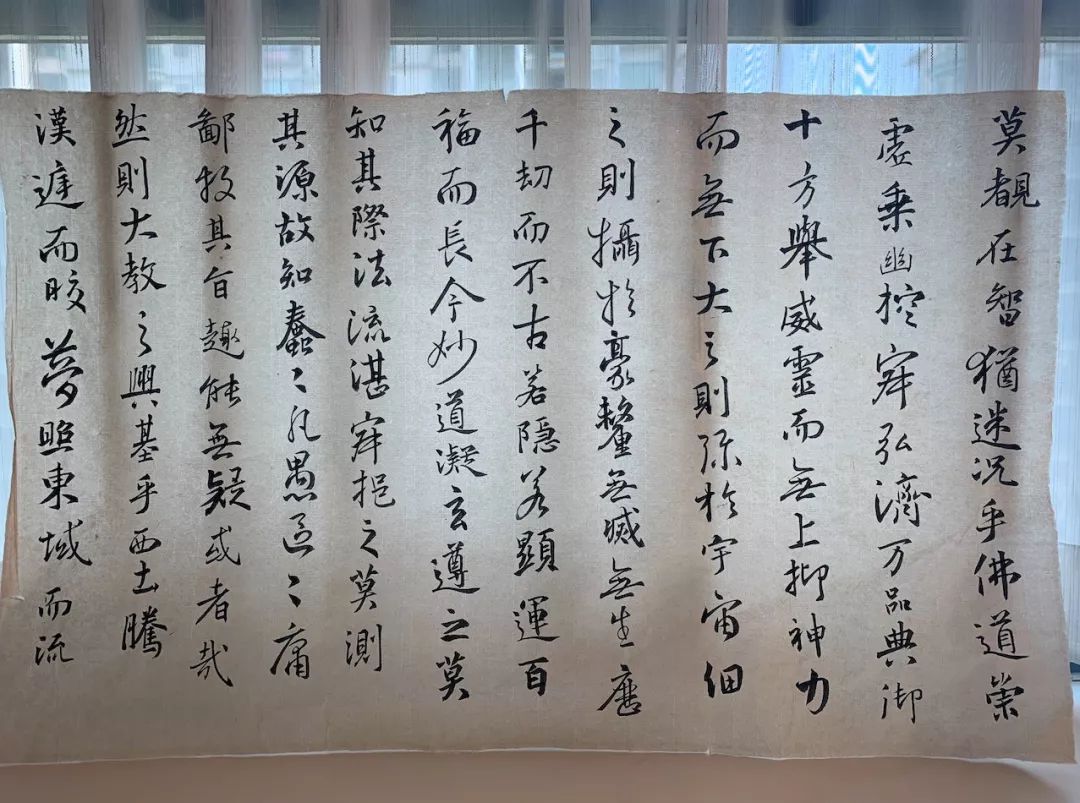 莫覩在智猶迷況乎佛道崇
虛乗幽控寂弘濟万品典御
十方舉威靈而無上抑神力
而無下大之則弥於宇宙細
之則攝於豪釐無滅無生歷
千劫而不古若隱若顯運百
福而長今妙道凝玄遵之莫
知其際法流湛寂挹之莫測
其源故知蠢〻凡愚區〻庸
鄙投其旨趣能無疑或者哉
然則大教之興基乎西土騰
漢庭而皎夢照東域而流